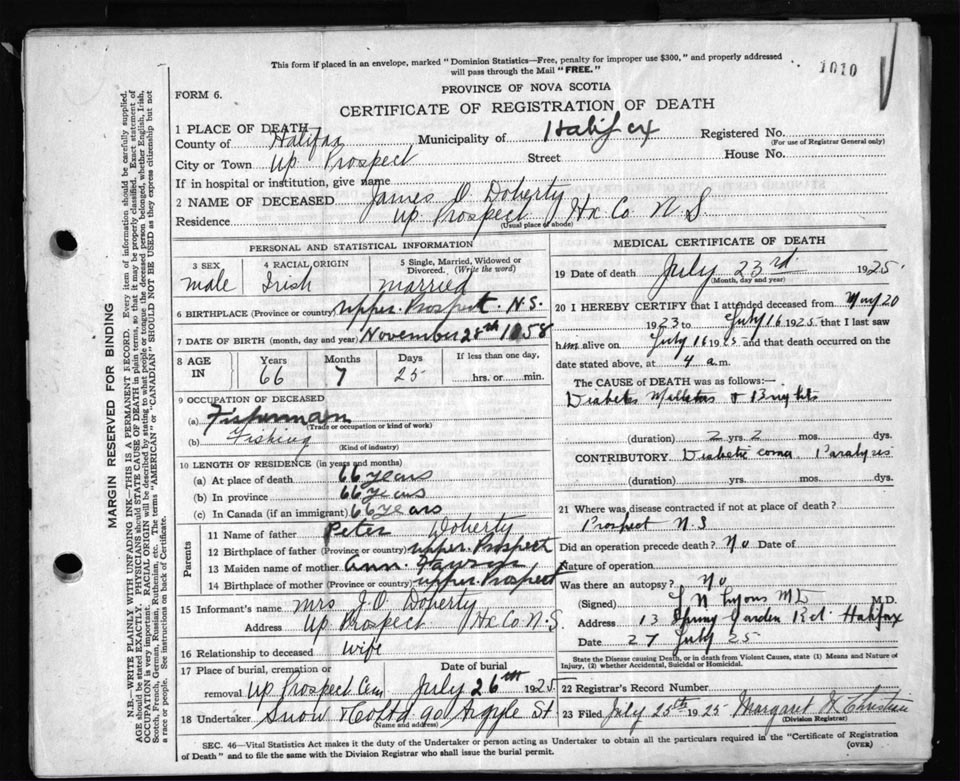 This form if placed in an envelope, marked "Dominion Statistics—Free, penalty for improper use $300," and properly addressed
will pass through the Mail "FREE."
1010
FORM 6.
PROVINCE OF NOVA SCOTIA
CERTIFICATE OF REGISTRATION OF DEATH
1 PLACE OF DEATH
County of Halifax Municipality of Halifax Registered No.
(For use of Registrar General only)
City or Town Up Prospect Street House No.
If in hospital or institution, give name
2 NAME OF DECEASED James O. Doherty
Residence Up Prospect Hx Co N.S.
(Usual place of abode)
PERSONAL AND STATISTICAL INFORMATION
3 SEX male
4 RACIAL ORIGIN Irish
5 Single, Married, Widowed or
Divorced. (Write the word)
married
6 BIRTHPLACE (Province or country) Upper Prospect N.S.
7 DATE OF BIRTH (month, day and year) November 28th 1858
8 AGE IN Years 66 Months 7 Days 25 If less than one day, hrs. or min.
9 OCCUPATION OF DECEASED
(a) Fisherman
(Trade or occupation or kind of work)
(b) Fishing
(Kind of industry)
10 LENGTH OF RESIDENCE (in years and months)
(a) At place of death 66 years
(b) In province 66 years
(c) In Canada (if an immigrant) 66 years
Parents
11 Name of father Peter Doherty
12 Birthplace of father (Province or country) Upper Prospect
13 Maiden name of mother Ann
14 Birthplace of mother (Province or country) Upper Prospect
15 Informant's name Mrs J.O. Doherty
Address Up Prospect Hx Co N.S.
16 Relationship to deceased wife
17 Place of burial, cremation or
removal Up Prospect Cem
Date of burial
July 26th 1925
18 Undertaker Snow & Co Ltd 90 Argyle St
(Name and address)
MEDICAL CERTIFICATE OF DEATH
19 Date of death July 23rd 1925
(Month, day and year)
20 I HEREBY CERTIFY that I attended deceased from May 20
1923 to July 16 1925 that I last saw
him alive on July 16 1925 and that death occurred on the
date stated above, at 4 a.m.
The CAUSE OF DEATH was as follows:—
Diabetes Mellitus & Brights
(duration) 2 yrs. 2 mos. dys.
CONTRIBUTORY Diabetic coma Paralysis
(duration) yrs. mos. dys.
21 Where was disease contracted if not at place of death?
Prospect N.S
Did an operation precede death? No Date of
Nature of operation
Was there an autopsy? No
(Signed) Lyons M.D.
Address 13 Spring Garden Rd Halifax
Date 27 July 25
State the Disease causing Death, or in death from Violent Causes, state (1) Means and Nature of
Injury, (2) whether Accidental, Suicidal or Homicidal.
22 Registrar's Record Number
23 Filed July 25th 1925 Margaret Christian
(Division Registrar)
SEC. 46—Vital Statistics Act makes it the duty of the Undertaker or person acting as Undertaker to obtain all the particulars required in the "Certificate of Registration
of Death" and to file the same with the Division Registrar who shall issue the burial permit.
(OVER)
MARGIN RESERVED FOR BINDING
N.B.—WRITE PLAINLY WITH UNFADING INK—THIS IS A PERMANENT RECORD. Every item of information should be carefully supplied.
AGE should be stated EXACTLY. PHYSICIANS should STATE CAUSE OF DEATH in plain terms, so that it may be properly classified. Exact statement of
OCCUPATION is very important. RACIAL ORIGIN will be described by stating to what people or tongue the deceased person belonged, whether English, Irish,
Scotch, French, German, Russian, Ruthenian, etc. The terms "AMERICAN" or "CANADIAN" SHOULD NOT BE USED as they express citizenship but not
a race or people. See instructions on back of Certificate.